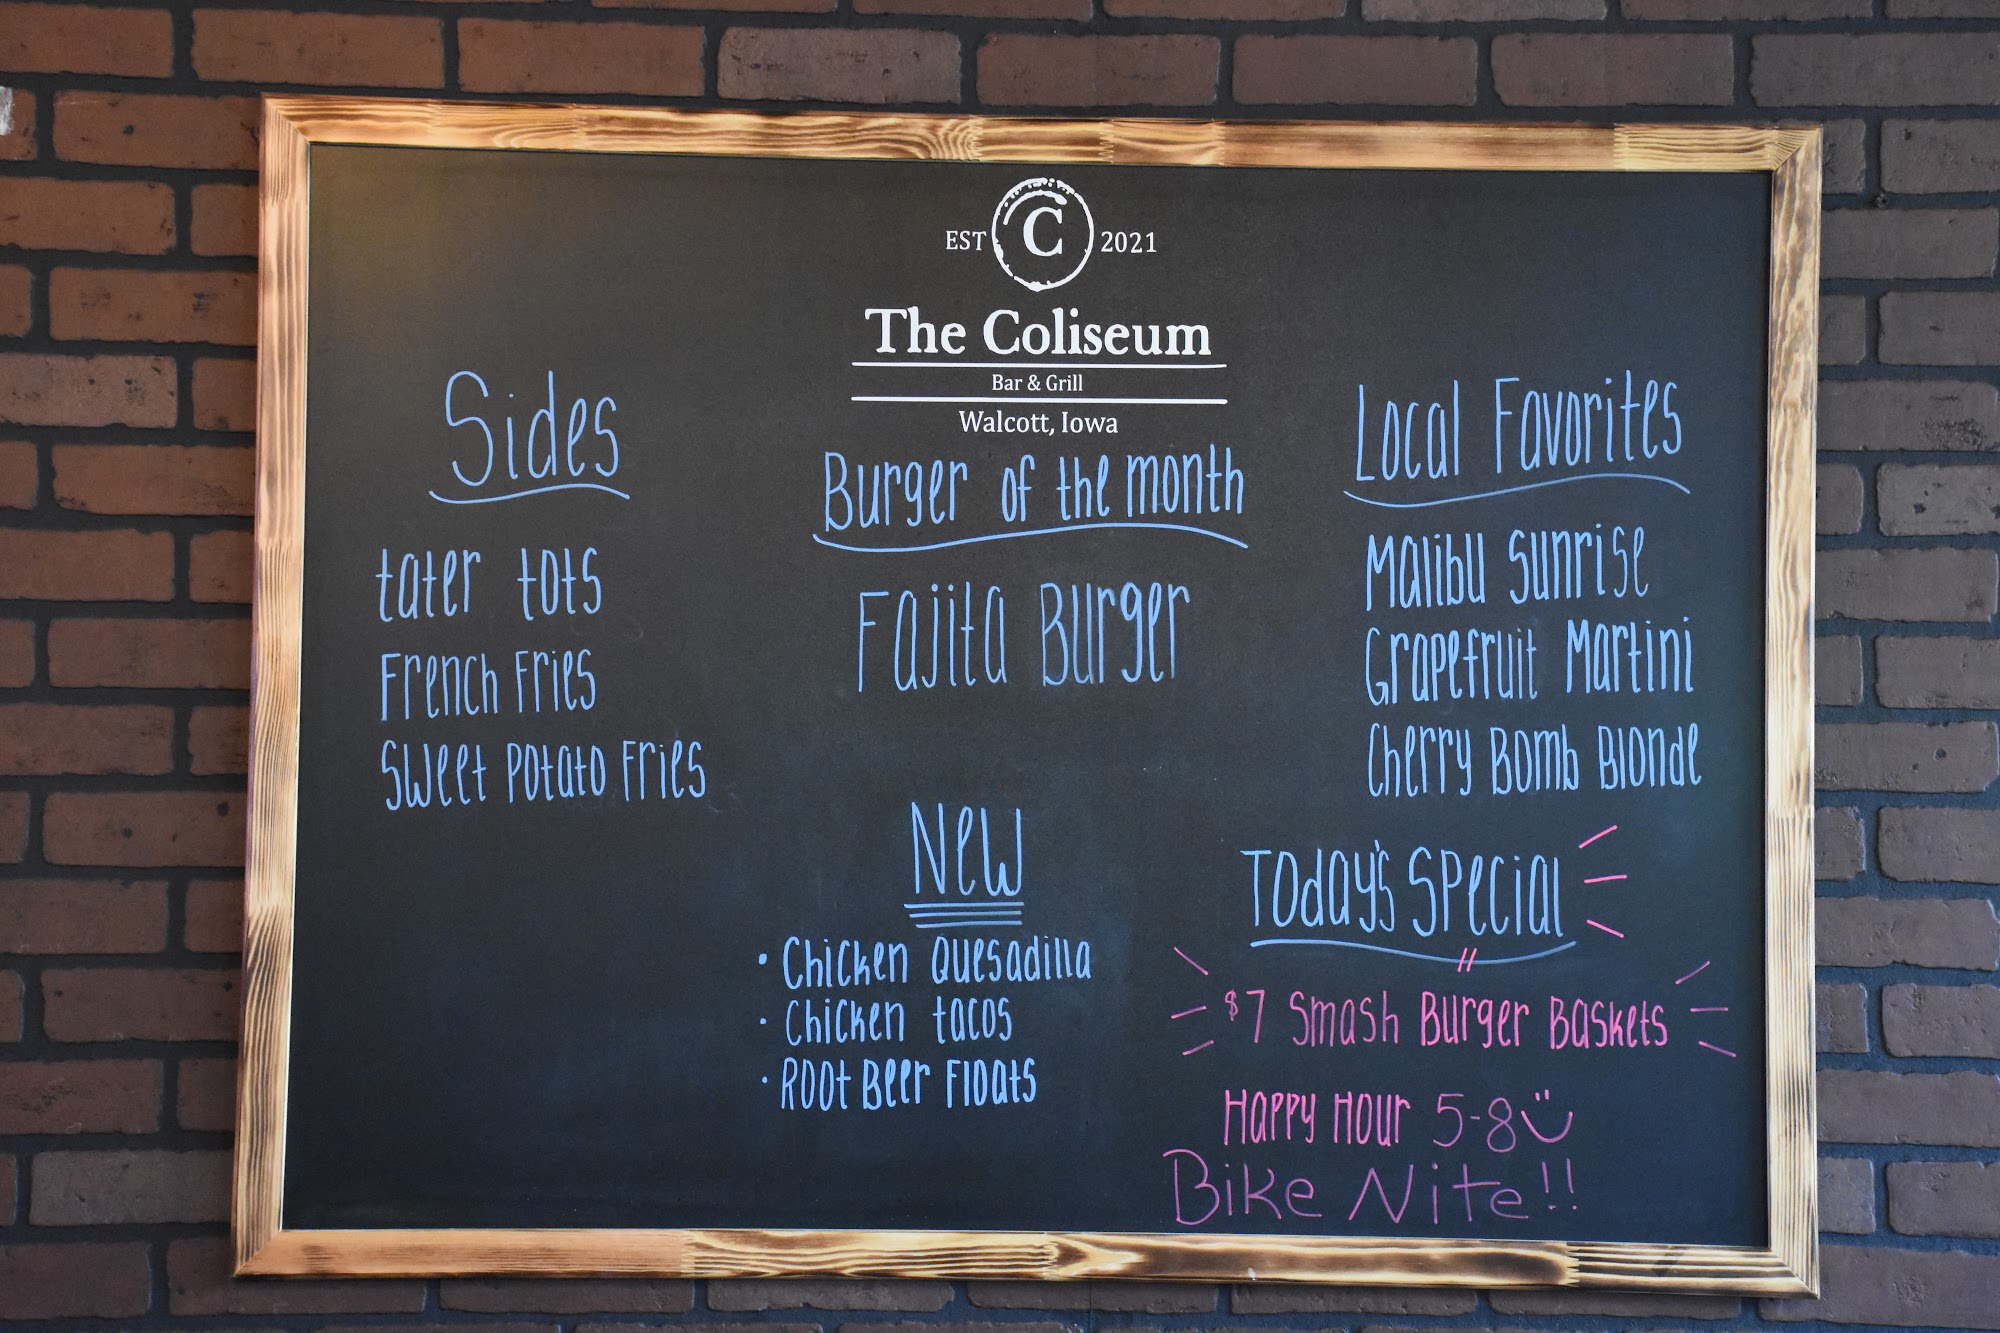 EST C 2021
The Coliseum
Bar & Grill
Walcott, Iowa
Sides
tater tots
French Fries
Sweet Potato Fries
Burger of the month
Fajita Burger
Local Favorites
Malibu Sunrise
Grapefruit Martini
Cherry Bomb Blonde
New
• Chicken Quesadilla
• Chicken tacos
• Root Beer Floats
Today's Special
$7 Smash Burger Baskets
Happy Hour 5-8
Bike Nite!!